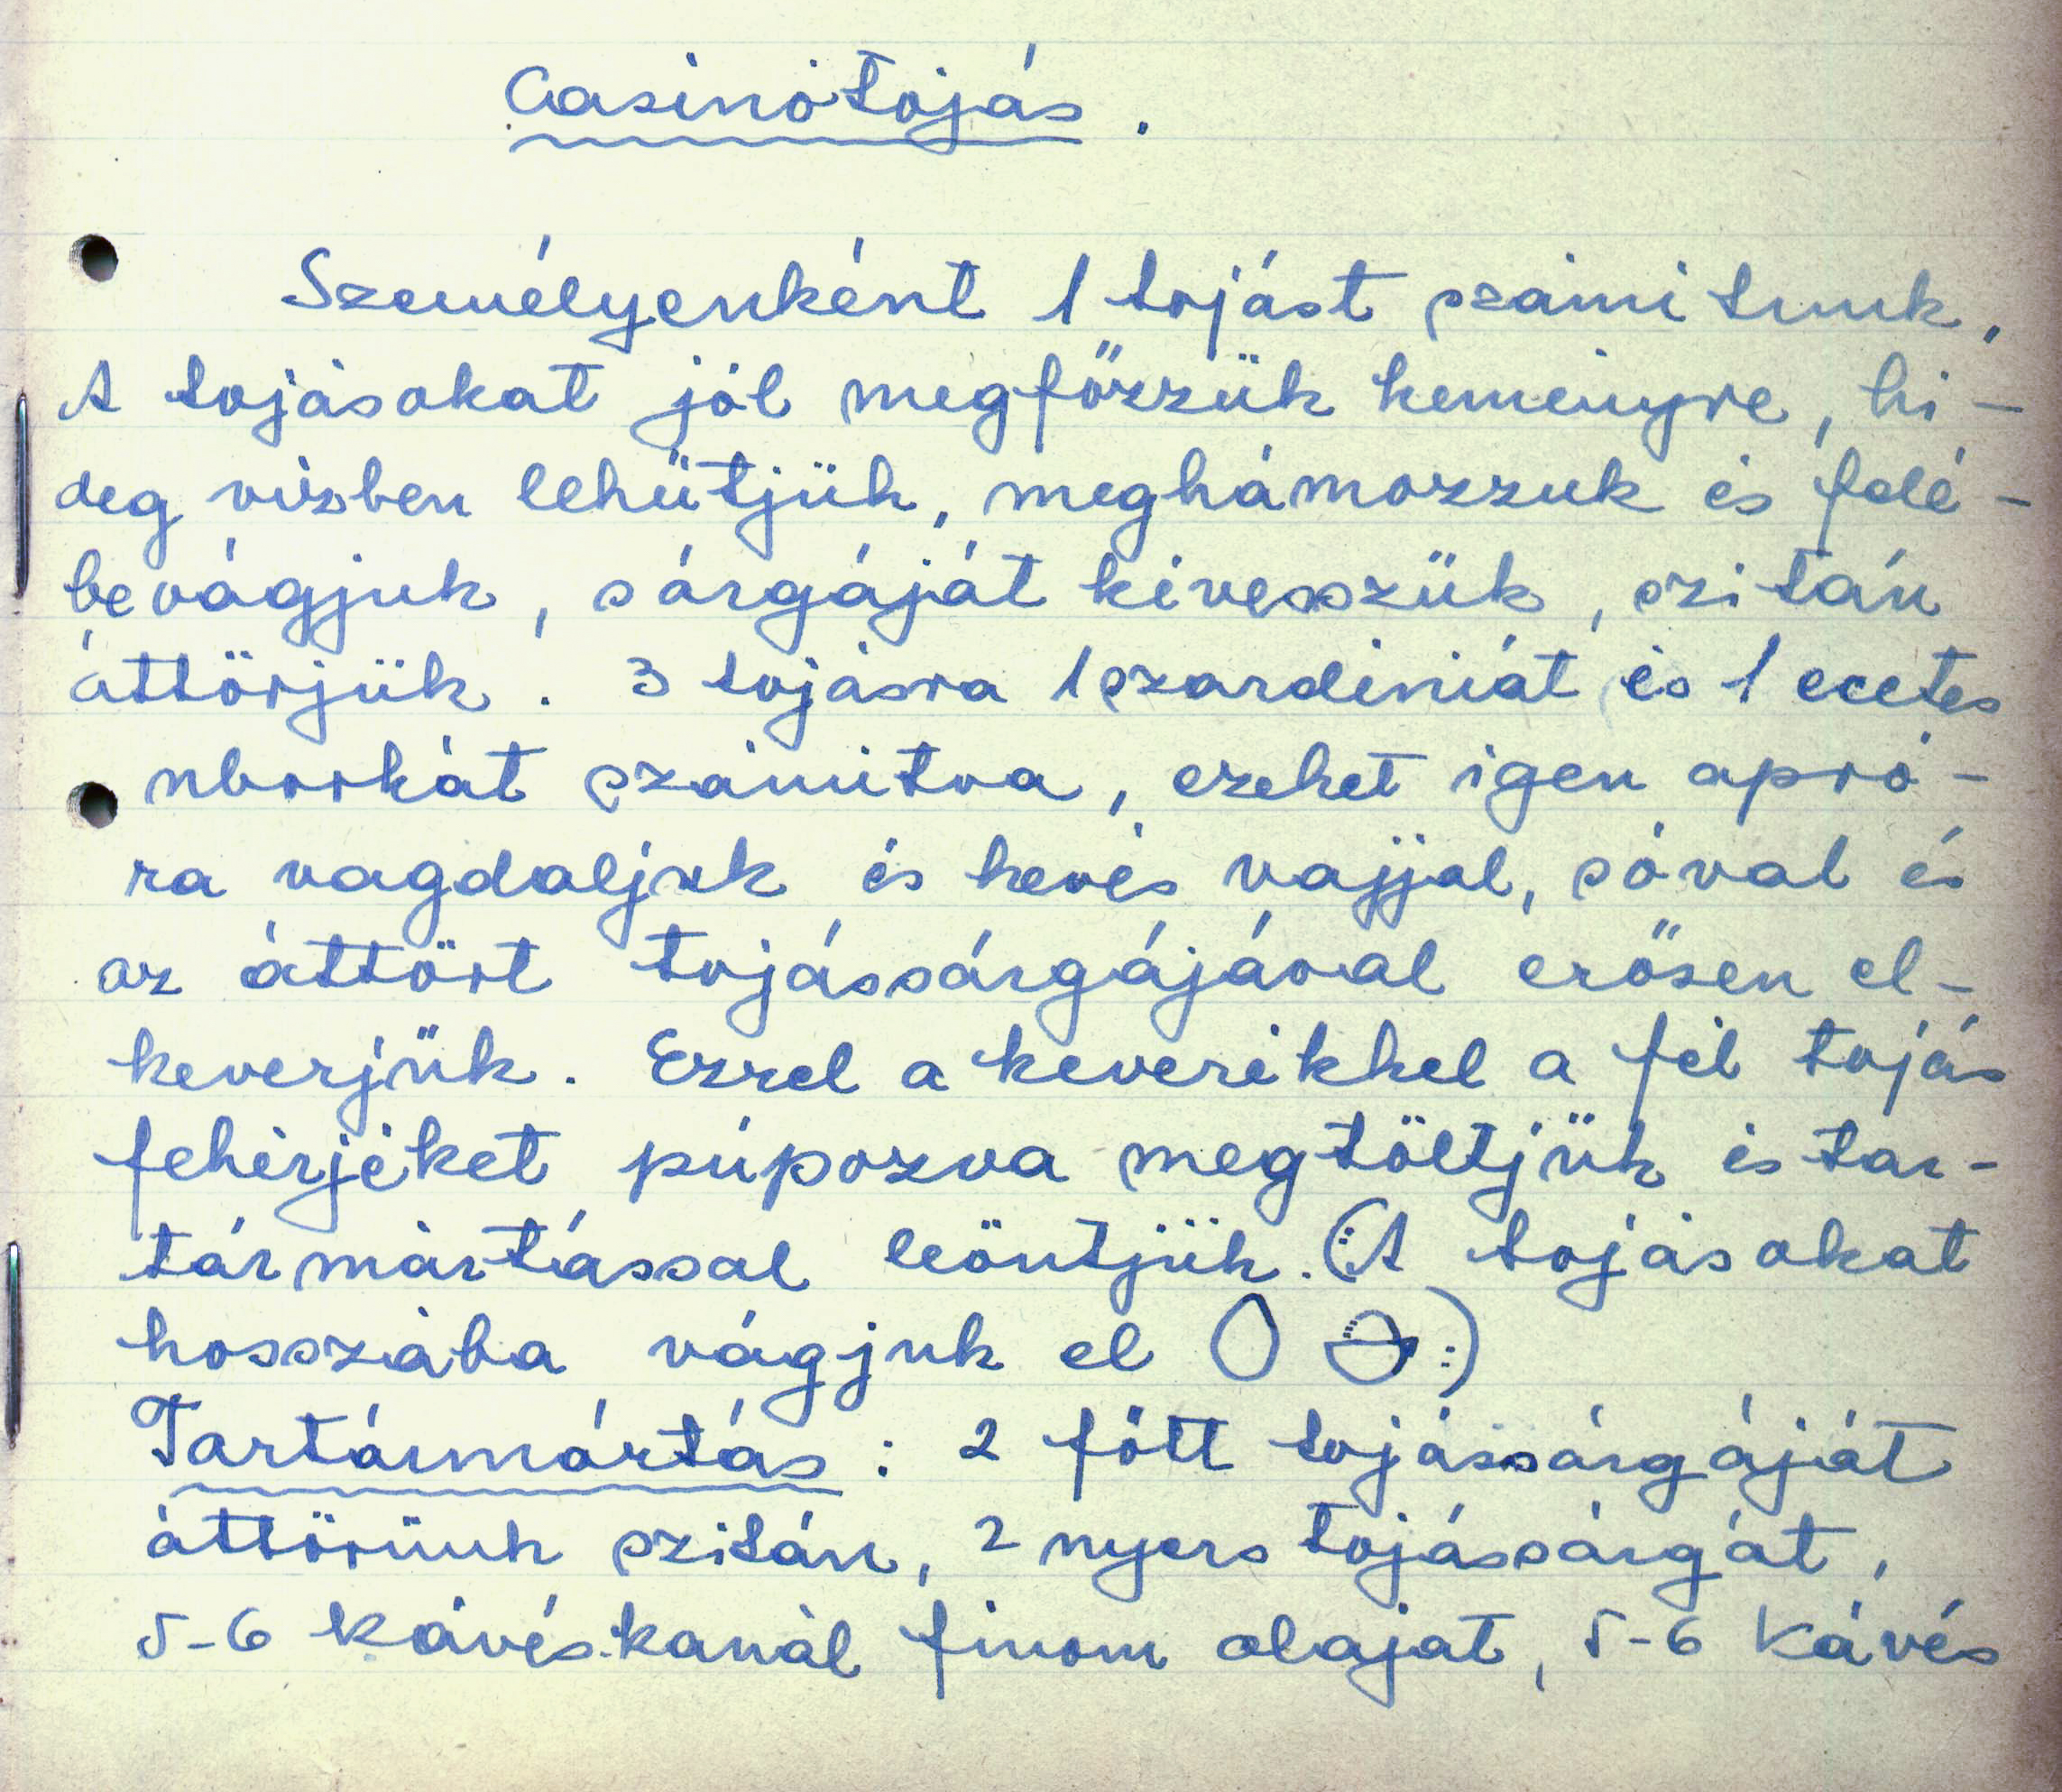 Casinótojás.
Személyenként 1 tojást számitunk.
A tojásokat jól megfőzzük keményre, hi-
deg vízben lehűtjük, meghámozzuk és felé-
bevágjuk, sárgáját kivesszük, szitán
áttörjük. 3 tojásra 1 szardíniát és 1 ecetes
uborkát számitva, ezeket igen apró-
ra vagdaljuk és kevés vajjal, sóval és
az áttört tojássárgájával erősen el-
keverjük. Ezzel a keverékkel a fél tojás
fehérjéket púpozva megtöltjük és tar-
tármártással leöntjük. (: A tojásokat
hosszába vágjuk el :)
Tartármártás: 2 főtt tojássárgáját
áttörünk szitán, 2 nyers tojássárgát,
5-6 kávéskanál finom olajat, 5-6 kávés